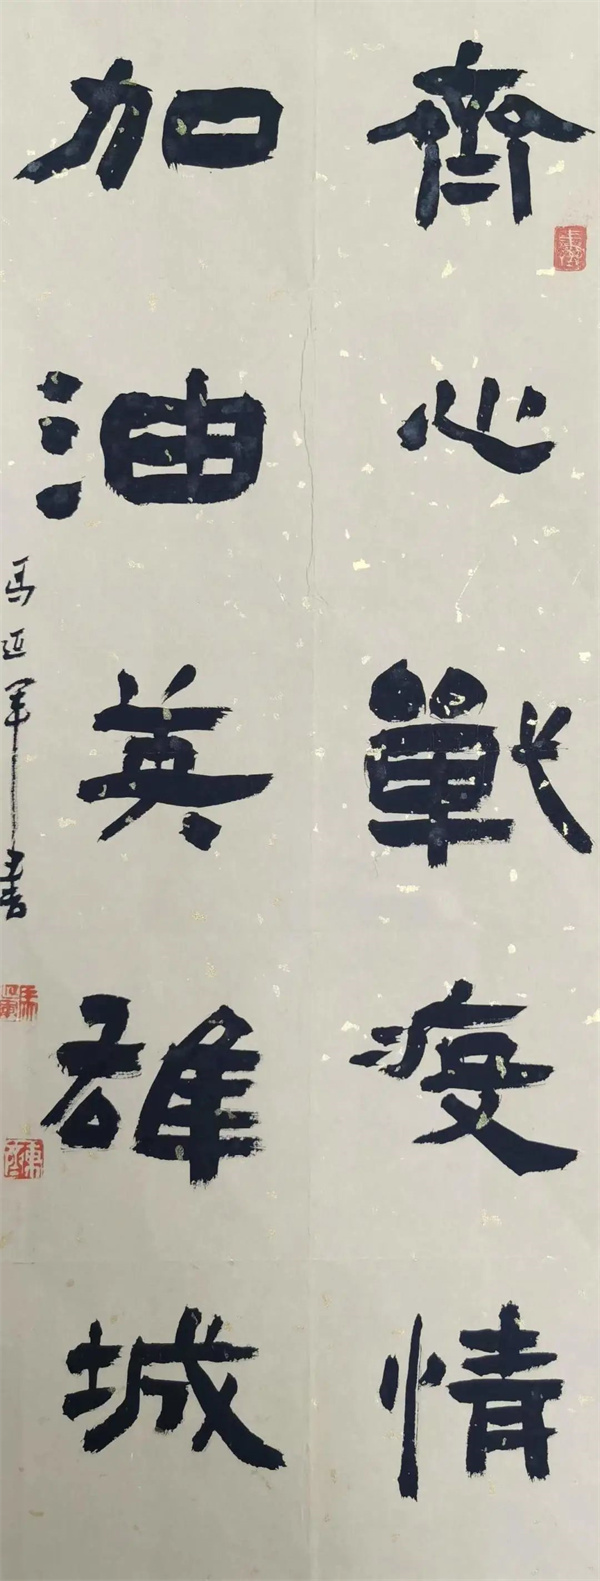 齊心戰疫情
加油英雄城
馬延軍書